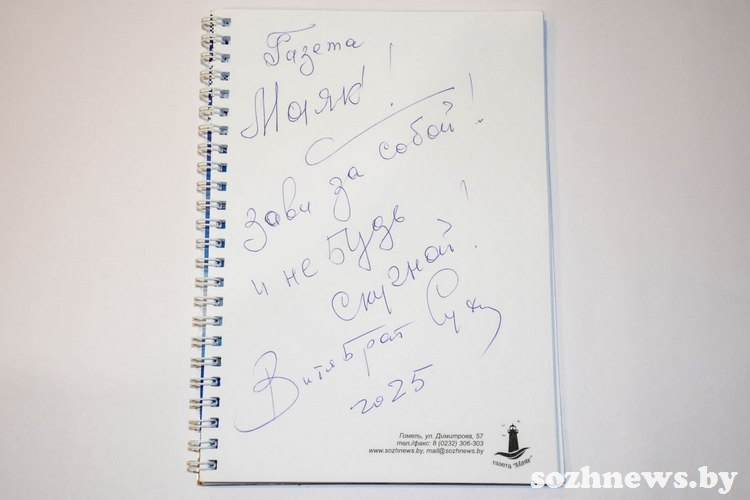 Газета
Маяк!
зови за собой!
и не будь
скучной!
Витя Брат
2025
Гомель, ул. Димитрова, 57
тел./факс: 8 (0232) 306-303
www.sozhnews.by, mail@sozhnews.by
газета "Маяк"
sozhnews.by